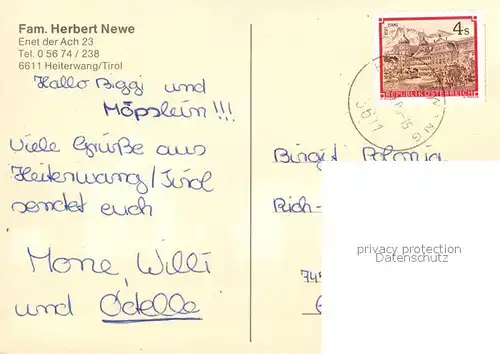 Fam. Herbert Newe
Enet der Ach 23
Tel. 0 56 74 / 238
6611 Heiterwang/Tirol
Hallo Biggi und
Möpslein!!!
Viele Grüße aus
Heiterwang/Tirol
sendet euch
Mone, Willi
und Odelle
4s
STIFT
REPUBLIK ÖSTERREICH
6611
Birgit Polonia
Rich-
privacy protection
Datenschutz
74